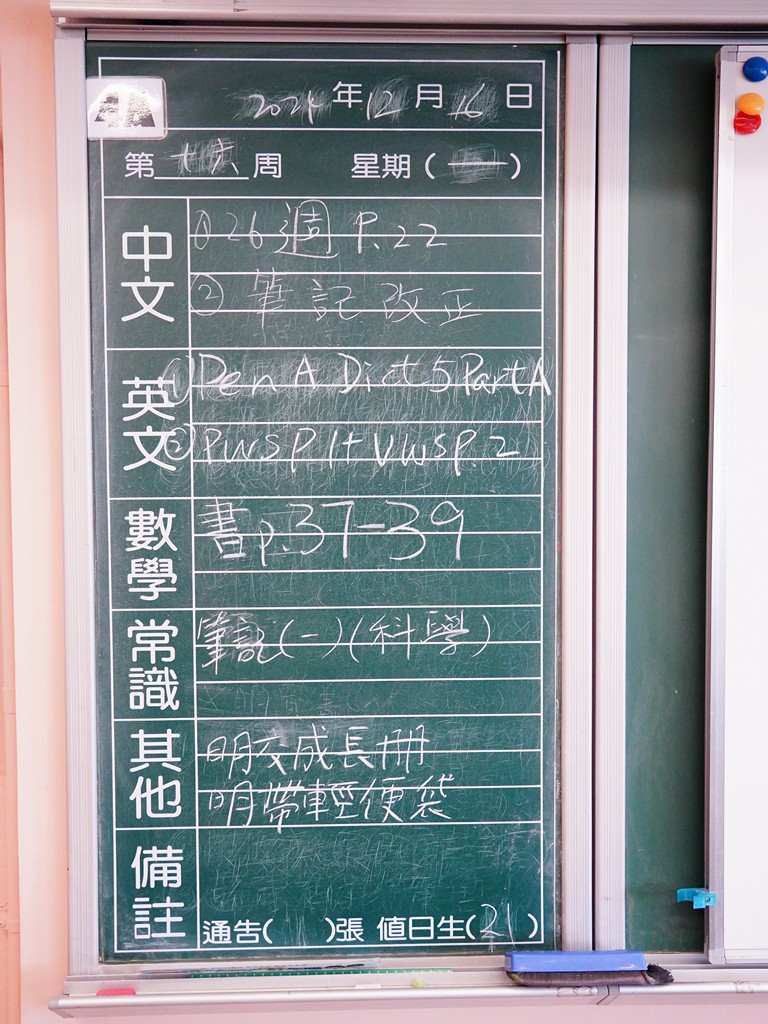 2024年12月16日
第十六周 星期(一)
中文
①26週 P.22
②筆記改正
英文
①Pen A Dict5 Part A
②PWS P.1+ VWS P.2
數學
書p.37-39
常識
筆記(一)(科學)
其他
明交成長冊
明帶輕便袋
備註
通告( )張 值日生(21)